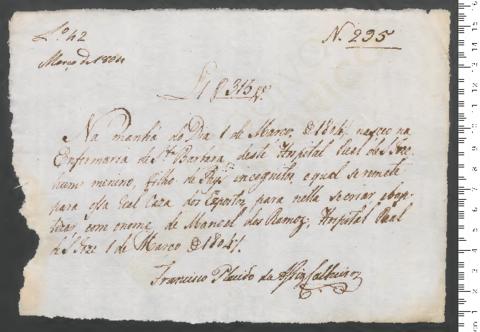 Lº 42
Março de 1804
N. 295
Lº f 313 vº
Na manhã do Dia 1 de Março, de 1804, nasceu na
Enfermaria de Sta Barbara, deste Hospital Real de S. Joze
hum menino, filho de Pays incognitos, o qual se remete
para essa Real Caza dos Expostos para nella se criar, e bap
tizar, com o nome de Manoel dos Ramos. Hospital Real
de S. Joze 1 de Março de 1804
Francisco Placido da